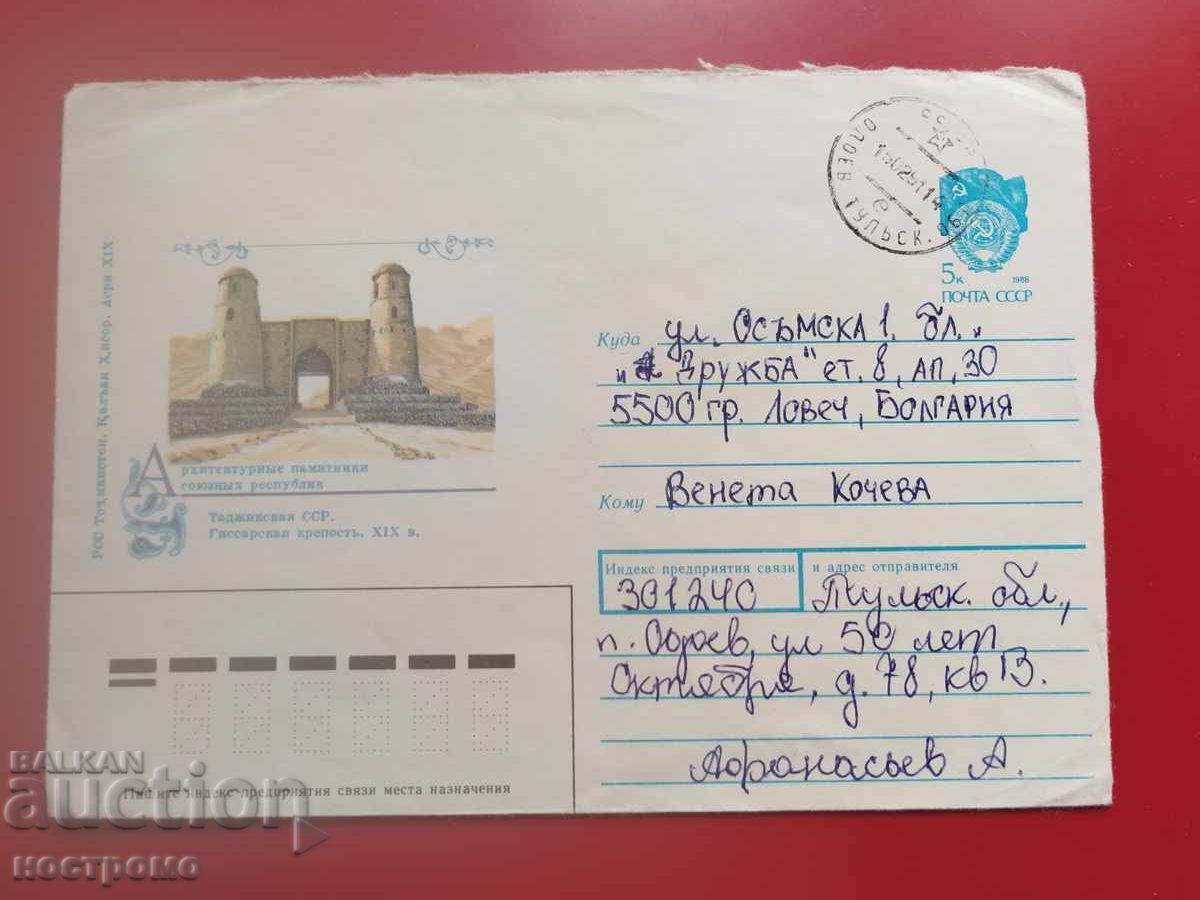 РСС Тоҷикистон. Қалъаи Ҳисор. Асри XIX
Архитектурные памятники
союзных республик
Таджикская ССР.
Гиссарская крепость. XIX в.
ОДОЕВ ТУЛЬСК. ОБЛ.
5к
1988
ПОЧТА СССР
Куда ул. ОСЪМСКА 1. бл.
"ДРУЖБА" ет. 8, АП, 30
5500 гр. Ловеч, БОЛГАРИЯ
Кому Венета Кочева
Индекс предприятия связи и адрес отправителя
301240 Тульск. обл.,
п. Одоев, ул 50 лет
Октября, д. 78, кв 13.
Афанасьев А.
Пишите индекс предприятия связи места назначения
BALKAN
auction
ностромо